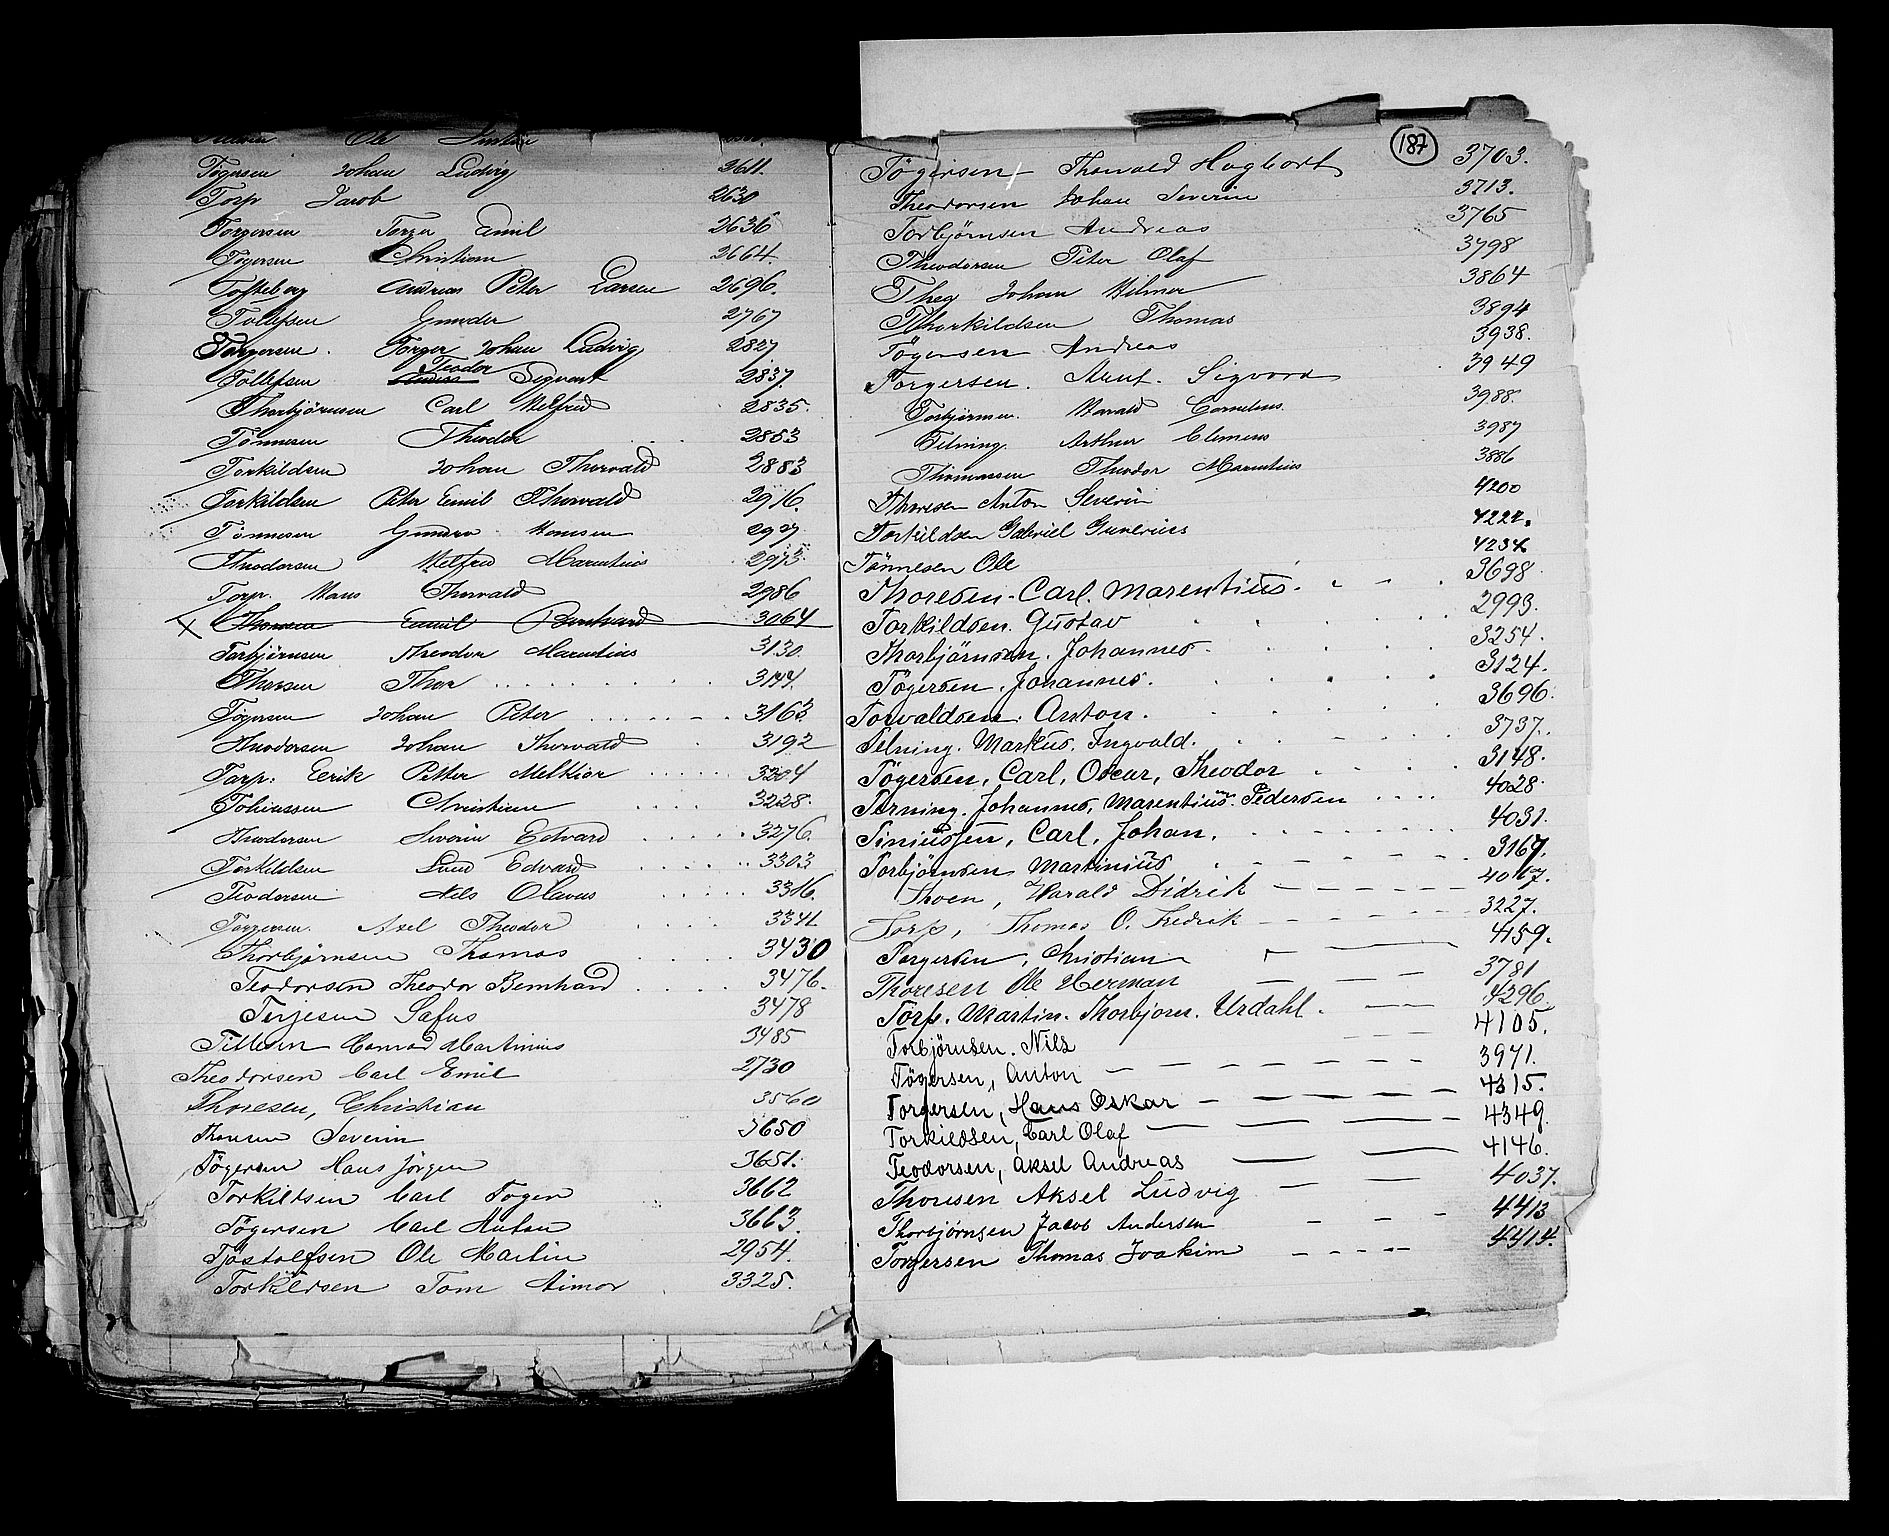 Ole
Tögersen Johan Ludvig 2611.
Torp Jacob 2630
Torgersen Torger Emil 2636
Tögersen Christian 2664.
Tofteberg Andreas Peter Larsen 2696.
Tollefsen Gunder 2767
Torgersen. Torger Johan Ludvig 2827
Teodor
Tollefsen Sigvart 2837
Thorbjörnsen Carl Wilfred 2835.
Tönnesen Theodor 2853
Torkildsen Johan Thorvald 2883
Torkildsen Peter Emil Thorvald 2916.
Tönnesen Gunder Hansen 2927
Theodorsen Wilfred Marentius 2973
Torp. Hans Thorvald 2986
X Thorsen Emil Bernhard 3064
Torbjörnsen Theodor Marentius 3130
Thorsen Thor 3144.
Tögersen Johan Peter 3163
Theodorsen Johan Thorvald 3192
Torp. Eerik Petter Melkior 3204
Tobiassen Christian 3228.
Theodorsen Severin Edvard 3276.
Torkildsen Lund Edvard 3303
Teodorsen Nils Olavus 3316.
Torgersen. Axel Theodor 3341
Thorbjörnsen Thomas 3430
Teodorsen Theodor Bernhard 3476.
Terjesen Safus 3478
Tillesen Conrad Martinius 3485
Theodorsen Carl Emil 2730
Thoresen, Christian 3560
Thorsen Severin 3650
Tögersen Hans Jörgen 3651.
Torkildsen Carl Toger 3662
Tögersen Carl Anton 3663.
Tjöstolfsen Ole Martin 2954.
Torkildsen Tom Aimor 3325.
187
Tögersen Thorvald Hagbart 3703.
Theodorsen Johan Severin 3713.
Torbjörnsen Andreas 3765
Theodorsen Peter Olaf 3798
They Johan Hilmer 3864
Thorkildsen Thomas 3894
Tögersen Andreas 3938.
Torgersen. Arnt. Sigvard 3949
Torbjörnsen. Harald Cornelius. 3988.
Telning. Arthur Clemens 3987
Thomassen Theodor Marentius 3886
Thoresen Anton Severin 4200
Torkildsen Gabriel Gunerius 4222.
Tönnesen Ole 4234
Thoresen. Carl. Marentius. 3698.
Torkildsen. Gustav 2993.
Thorbjörnsen. Johannes. 3254.
Tögersen. Johannes. 3124.
Torvaldsen. Anton. 3696.
Telning. Markus. Ingvald. 3737.
Tögersen, Carl, Oscar, Theodor 3148.
Terning. Johannes, Marentius. Pedersen 4028.
Siniussen, Carl, Johan, 4031.
Torbjörnsen Martinius 3167.
Thoen, Harald Didrik 4017.
Torp, Thomas O. Fredrik 3227.
Torgersen, Christian 4159.
Thoresen Ole Herman 3781
Torp. Martin. Thorbjorn. Urdahl. 4296.
Torbjörnsen. Nils 4105.
Tögersen, Anton 3971.
Torgersen, Hans Oskar 4315.
Torkildsen, Carl Olaf 4349.
Teodorsen, Aksel Andreas 4146.
Thoresen Aksel Ludvig 4037.
Thorbjørnsen Jacob Andersen 4413
Torgersen Thomas Joakim 4414.